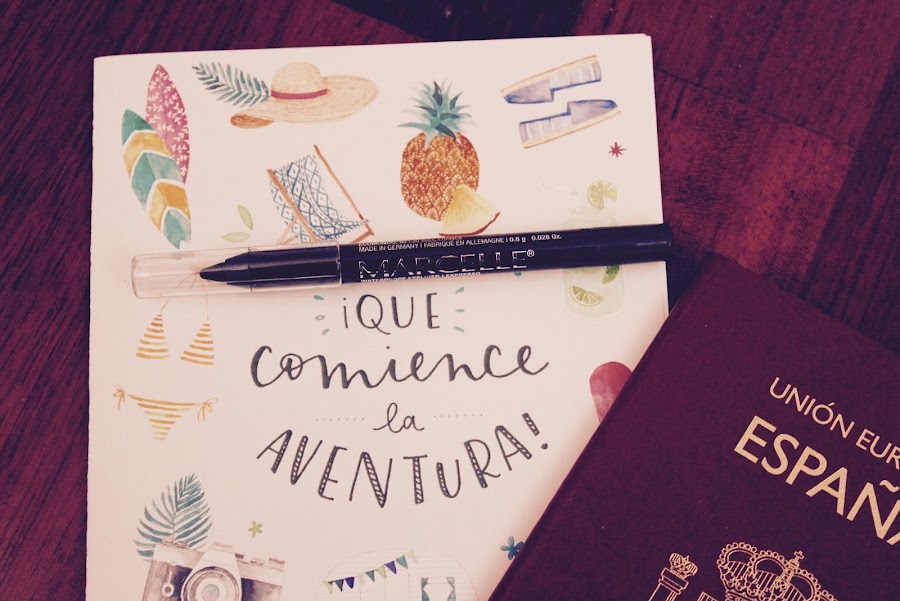 MADE IN GERMANY | FABRIQUÉ EN ALLEMAGNE | 0.8 g 0.028 Oz.
MARCELLE®
WATERPROOF EYELINER | EXPRESSO
¡QUE
comience
la
AVENTURA!
UNIÓN EUR
ESPAÑA